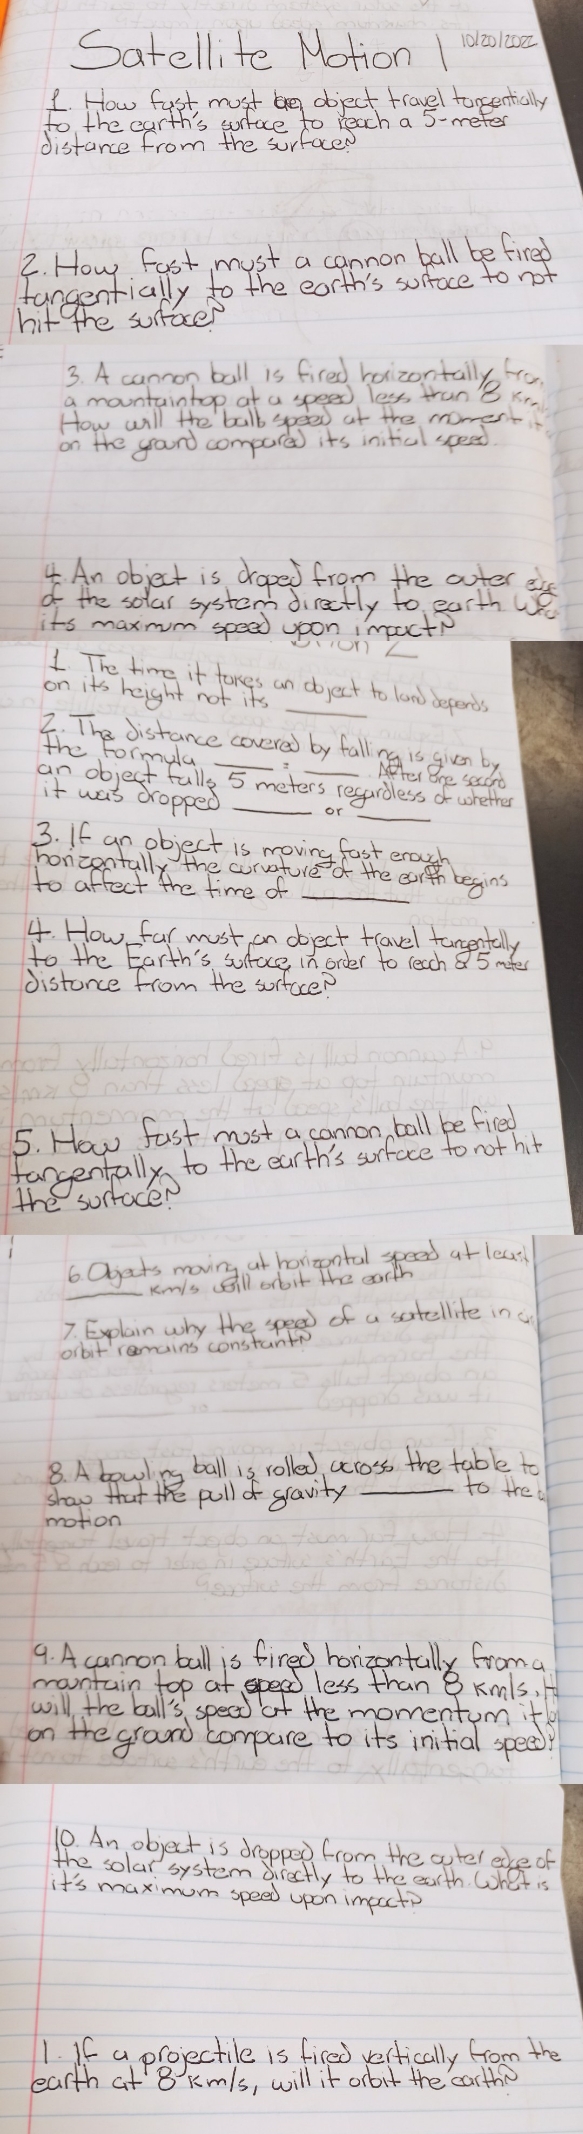 Satellite Motion 1 10/20/2022
1. How fast must an object travel tangentially
to the earth's surface to reach a 5-meter
distance from the surface?
2. How fast must a cannon ball be fired
tangentially to the earth's surface to not
hit the surface?
3. A cannon ball is fired horizontally from
a mountain top at a speed less than 8 km/s
How will the balls speed at the moment it
on the ground compared its initial speed.
4. An object is droped from the outer edge
of the solar system directly to earth
its maximum speed upon impact?
2
1. The time it takes an object to land depends
on its height not its ______
2. The distance covered by falling is given by
the formula ____ = ____. After one second
an object falls 5 meters regardless of whether
it was dropped ______ or ______
3. If an object is moving fast enough
horizontally the curvature of the earth begins
to affect the time of ______
4. How far must an object travel tangentally
to the Earth's surface in order to reach a 5 meter
distance from the surface?
5. How fast must a cannon ball be fired
tangentally to the earth's surface to not hit
the surface?
6. Objects moving at horizontal speed at least
______ km/s will orbit the earth
7. Explain why the speed of a satellite in
orbit remains constant?
8. A bowling ball is rolled across the table to
show that the pull of gravity ______ to the
motion
9. A cannon ball is fired horizontally from a
mountain top at speed less than 8 km/s.
will the ball's speed at the momentum it
on the ground compare to its initial speed?
10. An object is dropped from the outer edge of
the solar system directly to the earth. What is
it's maximum speed upon impact?
1. If a projectile is fired vertically from the
earth at 8 km/s, will it orbit the earth?